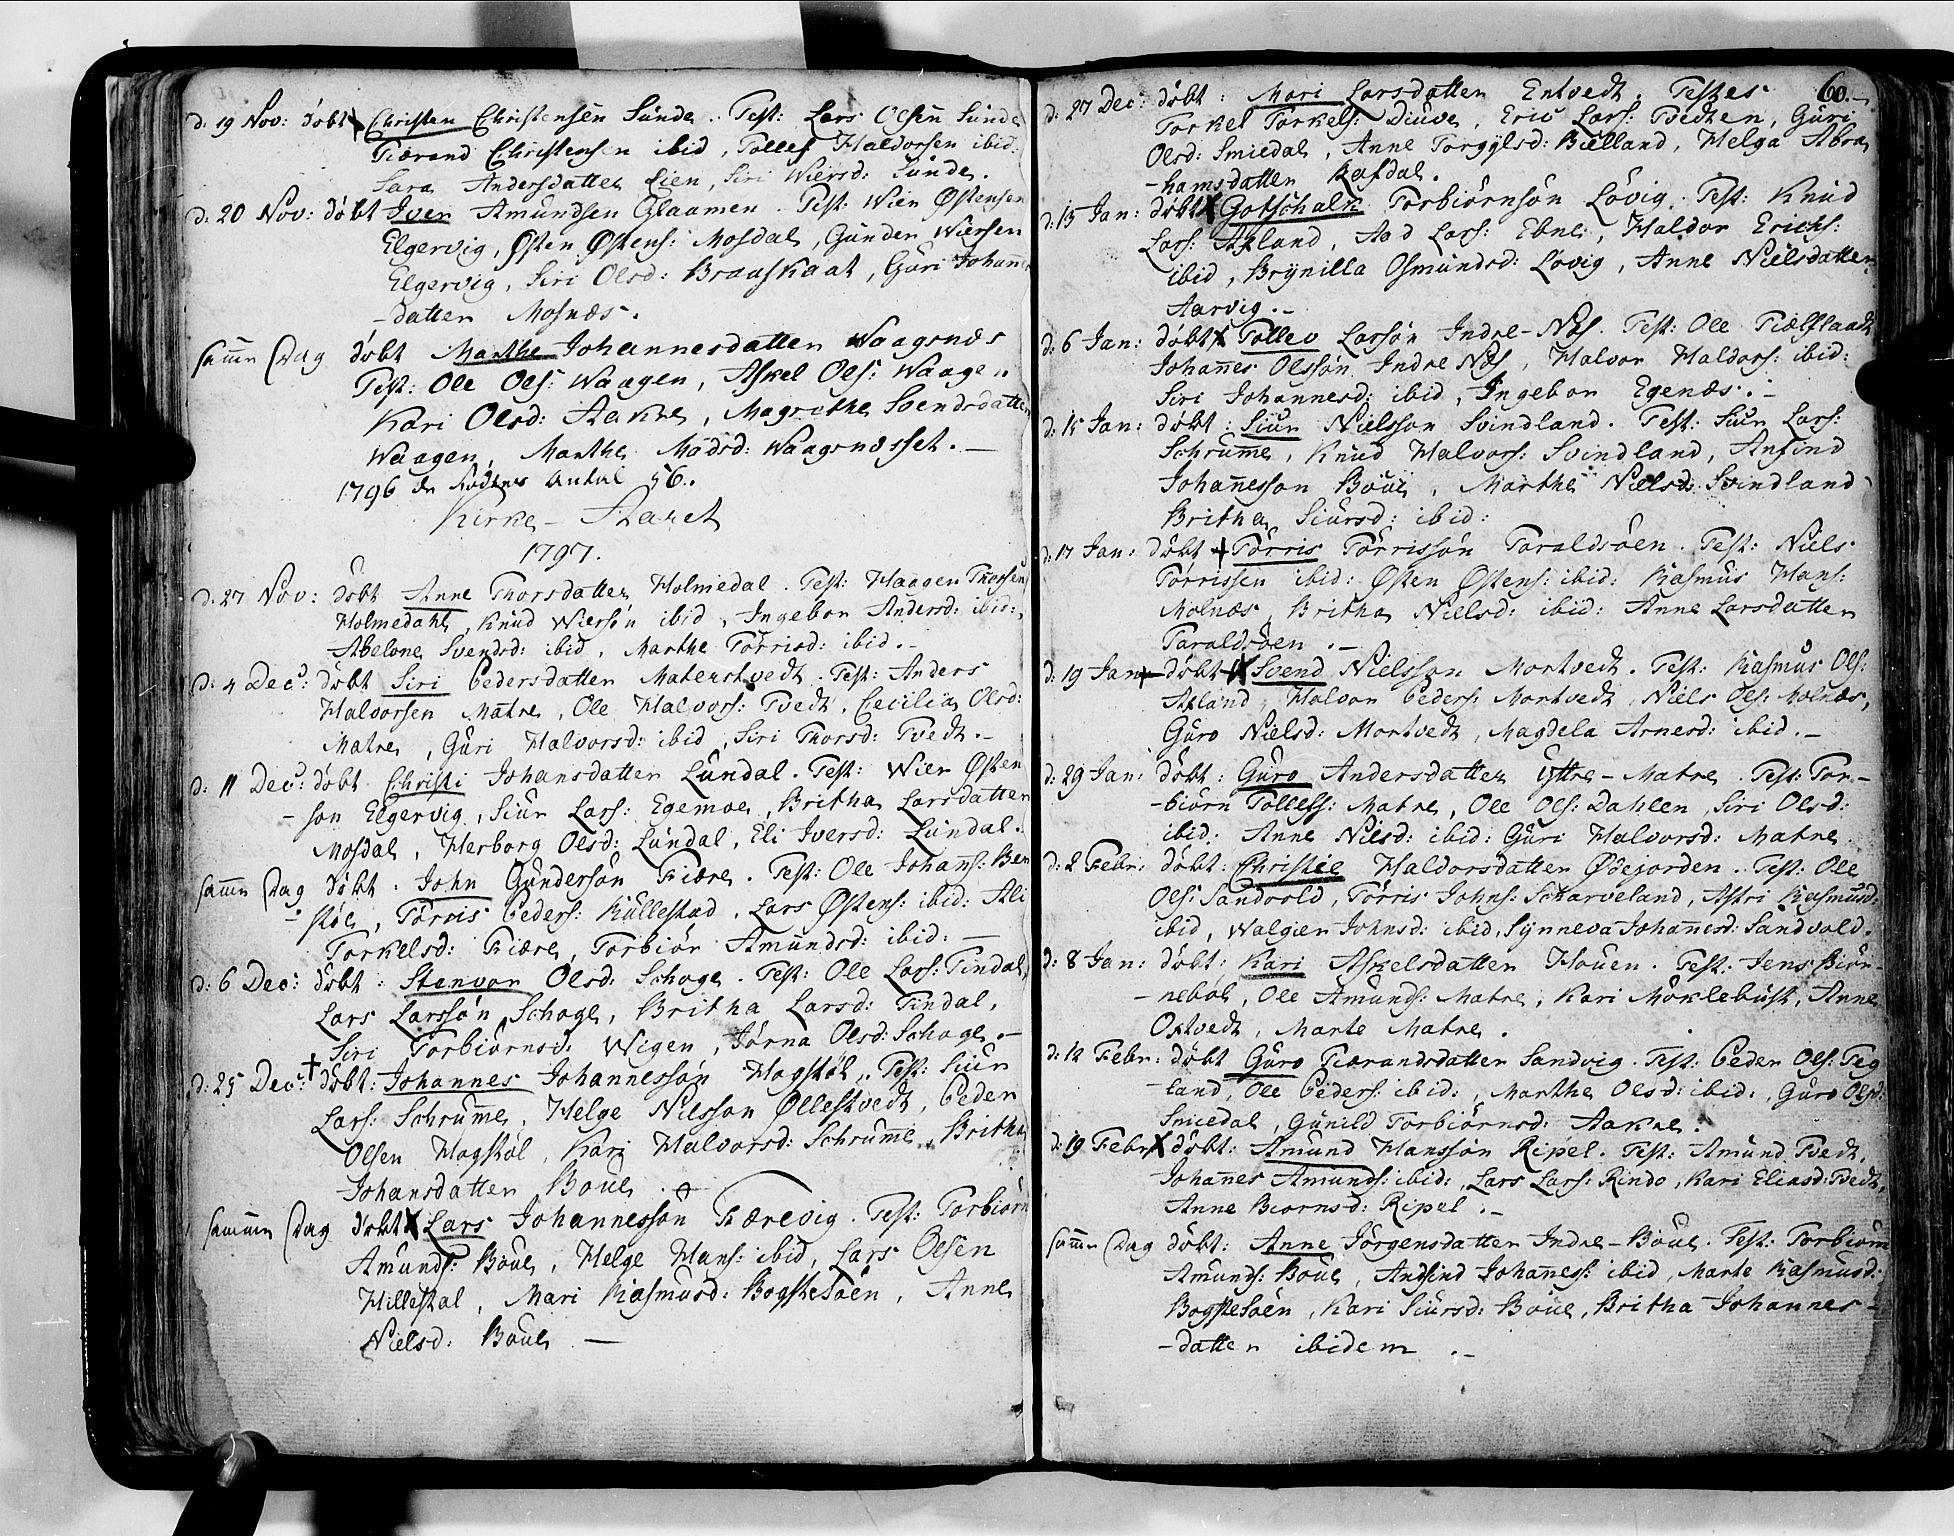 d: 19 Nov: døbt Christen Christensen Sunde. Test: Lars Olsen Sunde
Fierand Christensen ibid, Tollef Haldorsen ibid:
Sara Andersdatter Lien, Siri Wiersd: Sunde.
d: 20 Nov: døbt Iver Amundsen Glaamen. Test: Wier Østensen
Elgervig, Østen Østens: Mosdal, Gunder Wiersen
Elgervig, Siri Olsd: Braaskaat, Guri Johannes
-datter Mosnæs.
samme Dag døbt Marthe Johannesdatter Waagsnæs
Test: Ole Ols: Waagen, Askel Ols: Waagen
Kari Olsd: Aakre, Magrethe Svendsdatter
Waagen, Marthe Madsd: Waagsnæsset. —
1796 de Fødtes Antal 56.
Kirke-Aaret
1797.
d: 27 Nov: døbt Anne Thorsdatter Holmedal. Test: Haagen Thorsen
Holmedahl, Knud Wiersøn ibid, Ingebor Andersd: ibid:,
Abelone Svendsd: ibid, Marthe Tørrisd: ibid.-
d: 4 Dec: døbt Siri Pedersdatter Materstvedt. Test: Anders
Halvorsen Matre, Ole Halvors: Tvedt, Cecilia Olsd:
Matre, Guri Halvorsd: ibid, Siri Thorsd: Tvedt.-
d: 11 Dec: døbt Christi Johansdatter Lundal. Test: Wier Østen
-søn Elgervig, Siur Lars: Egemoe, Britha Larsdatter
Mosdal, Herborg Olsd: Lundal, Eli Iversd: Lundal.
samme Dag døbt. John Gundersøn Fiære. Test: Ole Johans: Ben
-støe, Tørris Peders: Kullestad, Lars Østens: ibid: Ali
Torkelsd: Fiære, Torbiør Amundsd: ibid: —
d: 6 Dec: døbt: Stenvor Olsd: Schoge. Test: Ole Lars: Tindal,
Lars Larssøn Schoge, Britha Larsd: Tindal,
Siri Torbiørnsd: Wigen, Jørna Olsd: Schoge.-
d: 25 Dec: døbt: Johannes Johannessøn Hogstøl. Test: Siur
Lars: Schrumme, Helge Nilsson Øllestvedt, Peder
Olsen Hogstøl, Kari Halvorsd: Schrumme, Britha
Johansdatter Boue.
samme Dag døbt Lars Johannessøn Fiærevig. Test: Torbiørn
Amunds: Boue, Helge Hans: ibid, Lars Olsen
Hillestal, Mari Rasmusd: Bogstesøen, Anne
Nielsd: Boue —
60.-
d: 27 Dec: døbt: Mari Larsdatter Entvedt. Testes
Torkel Torkels: Diuve, Eric Lars: Tvedten, Guri
Olsd: Smiedal, Anne Torgylsd: Bielland, Helga Abra
-hamsdatter Rafdal.
d: 15 Jan: døbt Gotschalk Torbiørnsøn Løvig. Test: Knud
Lars: Axland, Aad Lars: Ebne, Haldor Erichs:
ibid, Brynilla Osmundsd: Løvig, Anne Nielsdatter
Aarvig.-
d: 6 Jan: døbt Tollev Larsøn Indre-Næs. Test: Ole Fiælflaadt
Johannes Olssøn Indre Næs, Halvor Haldors: ibid:
Siri Johannesd: ibid, Ingebor Egenæs.-
d: 15 Jan: døbt: Siur Nielsson Svindland. Test: Siur Lars:
Schrumme, Knud Halvors: Svindland, Anfind
Johannesson Boue, Marthe Nielsd: Svindland
Britha Siursd: ibid:
d: 17 Jan: døbt Tørris Tørrissøn Taraldsøen. Test: Niels
Tørrissen ibid: Østen Østens: ibid: Rasmus Hans:
Molnæs, Britha Nielsd: ibid: Anne Larsdatter
Taraldsøen.-
d: 19 Jan: døbt Svend Nielsson Mortvedt. Test: Rasmus Ols:
Axland, Haldor Peders: Mortvedt, Niels Ols: Molnæs,
Guro Nielsd: Mortvedt, Magdela Arnesd: ibid.-
d: 29 Jan: døbt: Guro Andersdatter Yttre-Matre. Test: Tor-
-biørn Tollefs: Matre, Ole Ols: Dahlen, Siri Olsd:
ibid: Anne Nilsd: ibid: Guri Halvorsd: Matre.
d: 2 Febr: døbt: Christie Haldorsdatter Ødejorden. Test: Ole
Ols: Sandvold, Tørris Johns: Scharveland, Astri Rasmusd:
ibid, Walgier Johnsd: ibid, Synneva Johannesd: Sandvold.
d: 8 Jan: døbt: Kari Askelsdatter Houen. Test: Jens Biør-
-nebøl, Ole Amunds: Matre, Kari Möklebust, Anne
Oxtvedt, Marte Matre.
d: 12 Febr: døbt Guro Fiærandsdatter Sandvig. Test: Peder Ols: Teg
-land, Ole Peders: ibid:, Marthe Olsd: ibid:, Guro Olsd:
Smiedal, Gunild Torbiørnsd: Aakre.
d: 19 Febr: døbt: Amund Hanssøn Ripel. Test: Amund Tvedt,
Johannes Amunds: ibid:, Lars Lars: Rindo, Kari Eliasd: Tvedt,
Anne Biørnsd: Ripel.-
samme Dag døbt: Anne Jørgensdatter Indre-Boue. Test: Torbiørn
Amunds: Boue, Andfind Johannes: ibid, Marte Rasmusd:
Bogstesøen, Kari Siursd: Boue, Britha Johannes-
-datter ibidem.-